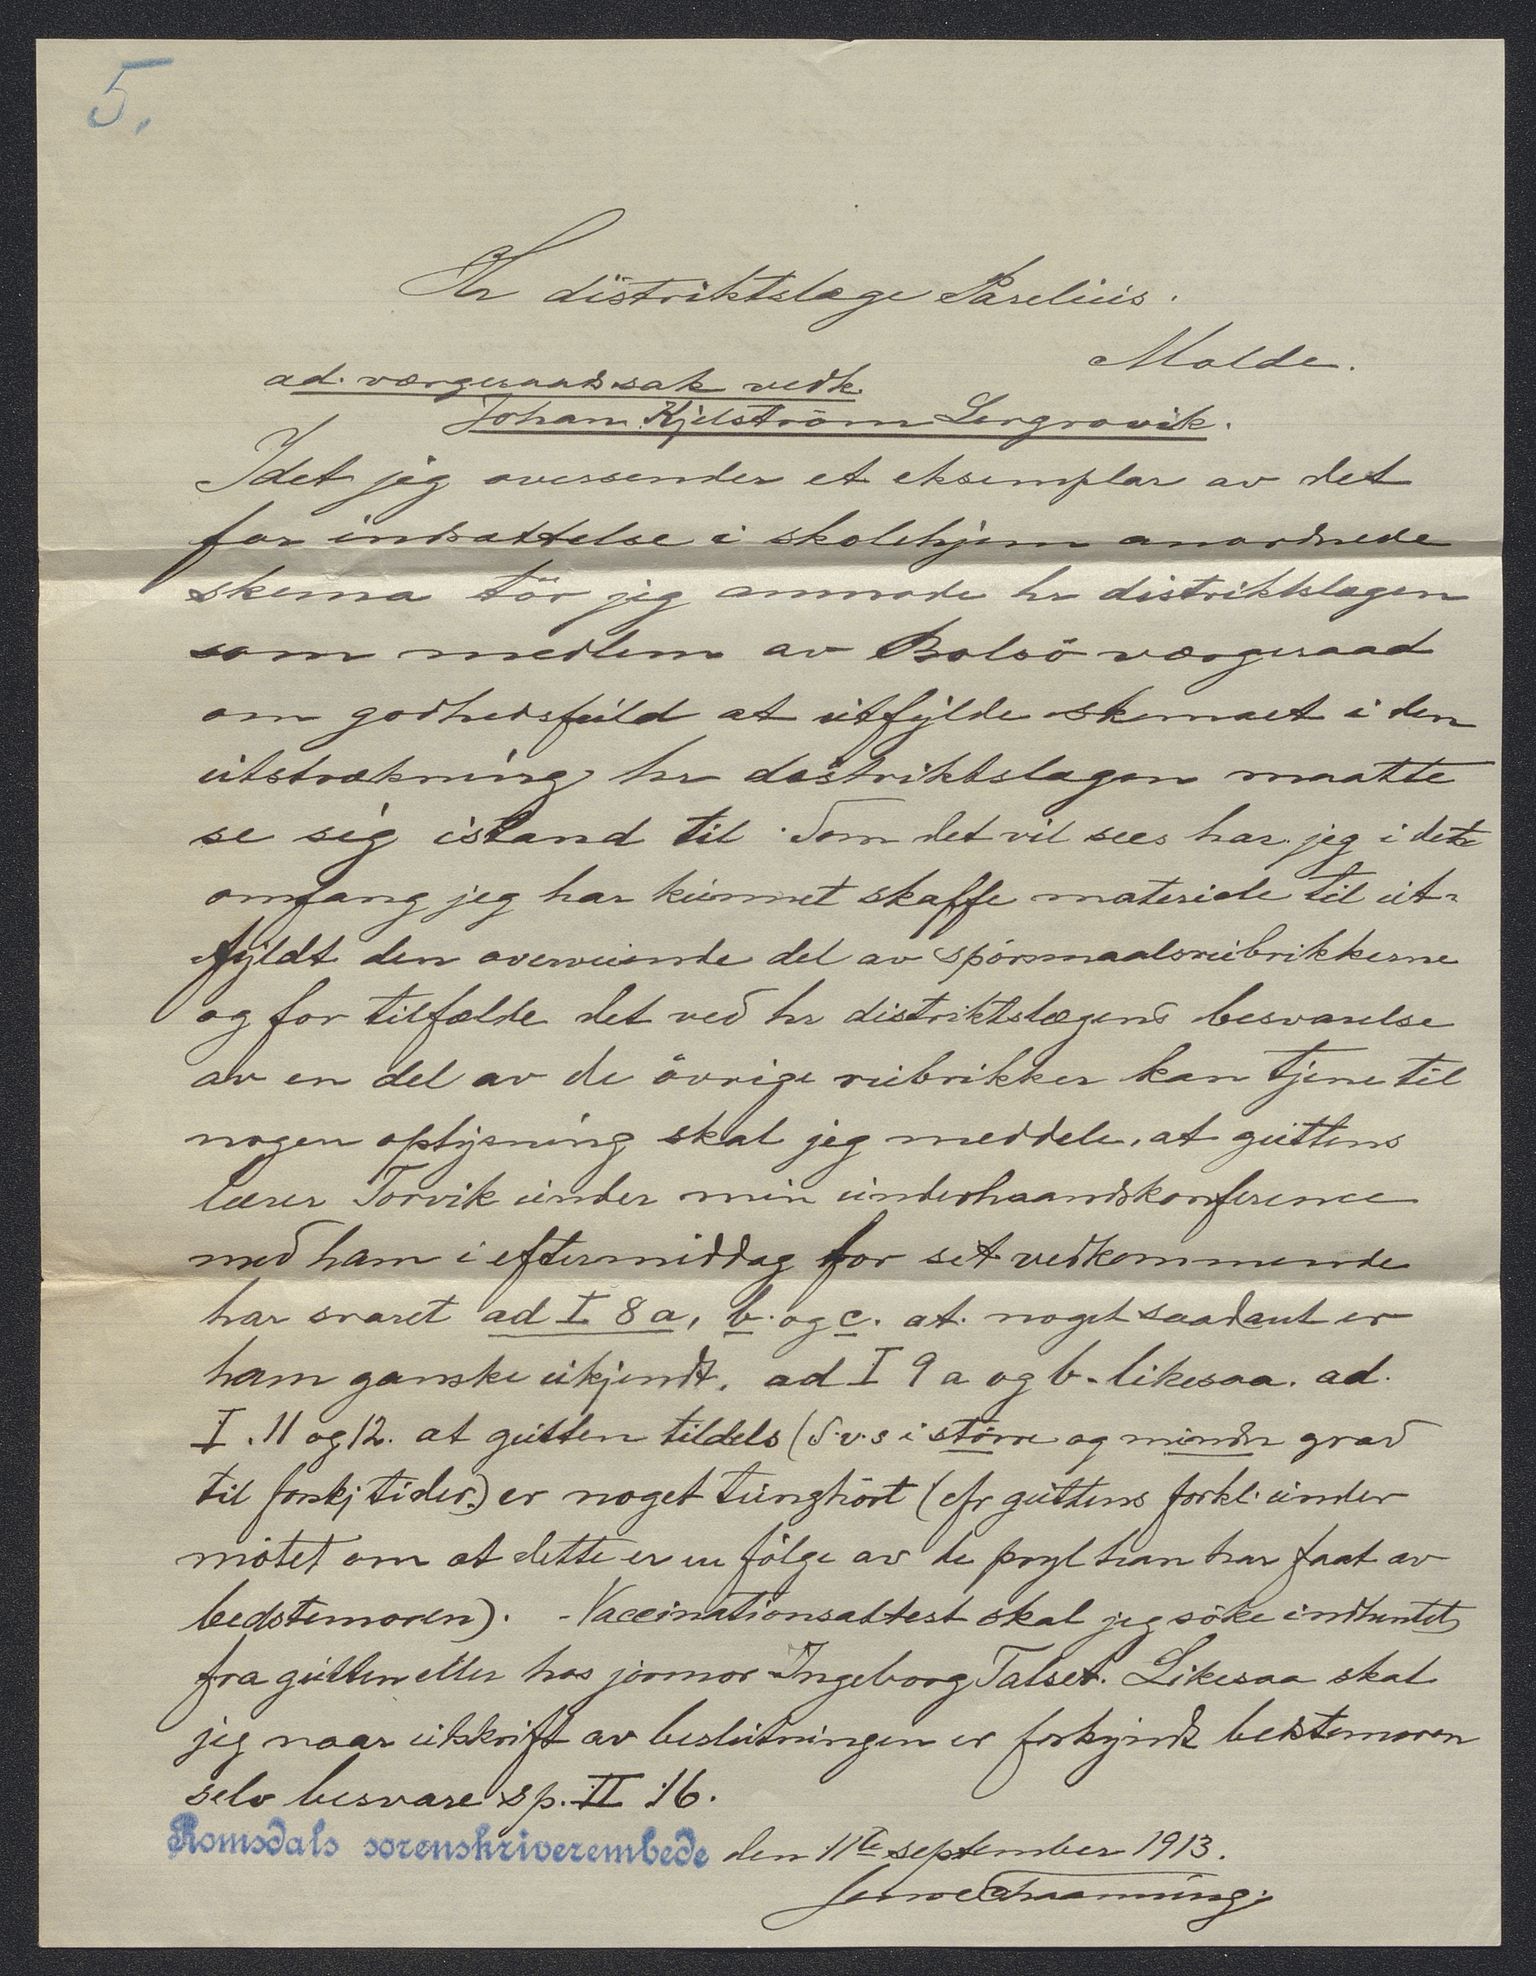 5.
Hr distriktslæge Parelius.
Molde.
ad. værgeraadssak vedk.
Johan Kjelström Lergrovik.
Idet jeg oversender et eksemplar av det
for indsættelse i skolehjem anordnede
skema tör jeg anmode hr distriktslægen
som medlem av Bolsö værgeraad
om godhedsfuld at utfylde skemaet i den
utstrækning hr distriktslægen maatte
se sig istand til. Som det vil sees har jeg i det
omfang jeg har kunnet skaffe materiale til ut-
fyldt den overveiende del av spörsmaalsrubrikkerne
og for tilfælde det ved hr distriktslægens besvarelse
av en del av de övrige rubrikker kan tjene til
nogen oplysning skal jeg meddele, at guttens
lærer Torvik under min underhaandskonference
med ham i eftermiddag for sit vedkommende
har svaret ad I 8 a, b. og c. at noget saadant er
ham ganske ukjendt, ad I 9 a og b. likesaa. ad.
I. 11 og 12. at gutten tildels (d.v.s i större og mindre grad
til forskj tider.) er noget tunghört (cfr guttens forkl. under
mötet om at dette er en fölge av de pryl han har faat av
bedstemoren). Vaccinationsattest skal jeg söke indhentet
fra gutten eller hos jormor Ingeborg Talset. Likesaa skal
jeg naar utskrift av beslutningen er forkyndt bedstemoren
selv besvare sp. II 16.
Romsdals sorenskriverembede den 11te september 1913.